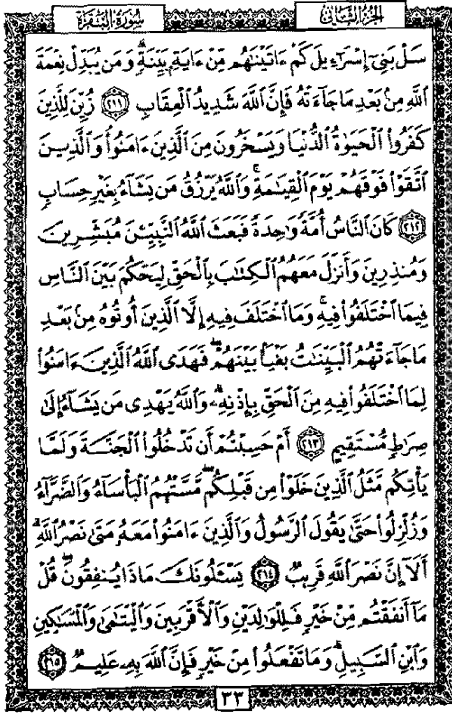 الجزء الثاني
سورة البقرة
سَلْ بَنِىٓ إِسْرَٰٓءِيلَ كَمْ ءَاتَيْنَٰهُم مِّنْ ءَايَةٍۭ بَيِّنَةٍ ۗ وَمَن يُبَدِّلْ نِعْمَةَ
ٱللَّهِ مِنۢ بَعْدِ مَا جَآءَتْهُ فَإِنَّ ٱللَّهَ شَدِيدُ ٱلْعِقَابِ ﴿٢١١﴾ زُيِّنَ لِلَّذِينَ
كَفَرُوا۟ ٱلْحَيَوٰةُ ٱلدُّنْيَا وَيَسْخَرُونَ مِنَ ٱلَّذِينَ ءَامَنُوا۟ ۘ وَٱلَّذِينَ
ٱتَّقَوْا۟ فَوْقَهُمْ يَوْمَ ٱلْقِيَٰمَةِ ۗ وَٱللَّهُ يَرْزُقُ مَن يَشَآءُ بِغَيْرِ حِسَابٍ
﴿٢١٢﴾ كَانَ ٱلنَّاسُ أُمَّةً وَٰحِدَةً فَبَعَثَ ٱللَّهُ ٱلنَّبِيِّـۧنَ مُبَشِّرِينَ
وَمُنذِرِينَ وَأَنزَلَ مَعَهُمُ ٱلْكِتَٰبَ بِٱلْحَقِّ لِيَحْكُمَ بَيْنَ ٱلنَّاسِ
فِيمَا ٱخْتَلَفُوا۟ فِيهِ ۚ وَمَا ٱخْتَلَفَ فِيهِ إِلَّا ٱلَّذِينَ أُوتُوهُ مِنۢ بَعْدِ
مَا جَآءَتْهُمُ ٱلْبَيِّنَٰتُ بَغْيًۢا بَيْنَهُمْ ۖ فَهَدَى ٱللَّهُ ٱلَّذِينَ ءَامَنُوا۟
لِمَا ٱخْتَلَفُوا۟ فِيهِ مِنَ ٱلْحَقِّ بِإِذْنِهِۦ ۗ وَٱللَّهُ يَهْدِى مَن يَشَآءُ إِلَىٰ
صِرَٰطٍ مُّسْتَقِيمٍ ﴿٢١٣﴾ أَمْ حَسِبْتُمْ أَن تَدْخُلُوا۟ ٱلْجَنَّةَ وَلَمَّا
يَأْتِكُم مَّثَلُ ٱلَّذِينَ خَلَوْا۟ مِن قَبْلِكُم ۖ مَّسَّتْهُمُ ٱلْبَأْسَآءُ وَٱلضَّرَّآءُ
وَزُلْزِلُوا۟ حَتَّىٰ يَقُولَ ٱلرَّسُولُ وَٱلَّذِينَ ءَامَنُوا۟ مَعَهُۥ مَتَىٰ نَصْرُ ٱللَّهِ ۗ
أَلَآ إِنَّ نَصْرَ ٱللَّهِ قَرِيبٌ ﴿٢١٤﴾ يَسْـَٔلُونَكَ مَاذَا يُنفِقُونَ ۖ قُلْ
مَآ أَنفَقْتُم مِّنْ خَيْرٍ فَلِلْوَٰلِدَيْنِ وَٱلْأَقْرَبِينَ وَٱلْيَتَٰمَىٰ وَٱلْمَسَٰكِينِ
وَٱبْنِ ٱلسَّبِيلِ ۗ وَمَا تَفْعَلُوا۟ مِنْ خَيْرٍ فَإِنَّ ٱللَّهَ بِهِۦ عَلِيمٌ ﴿٢١٥﴾
٣٣